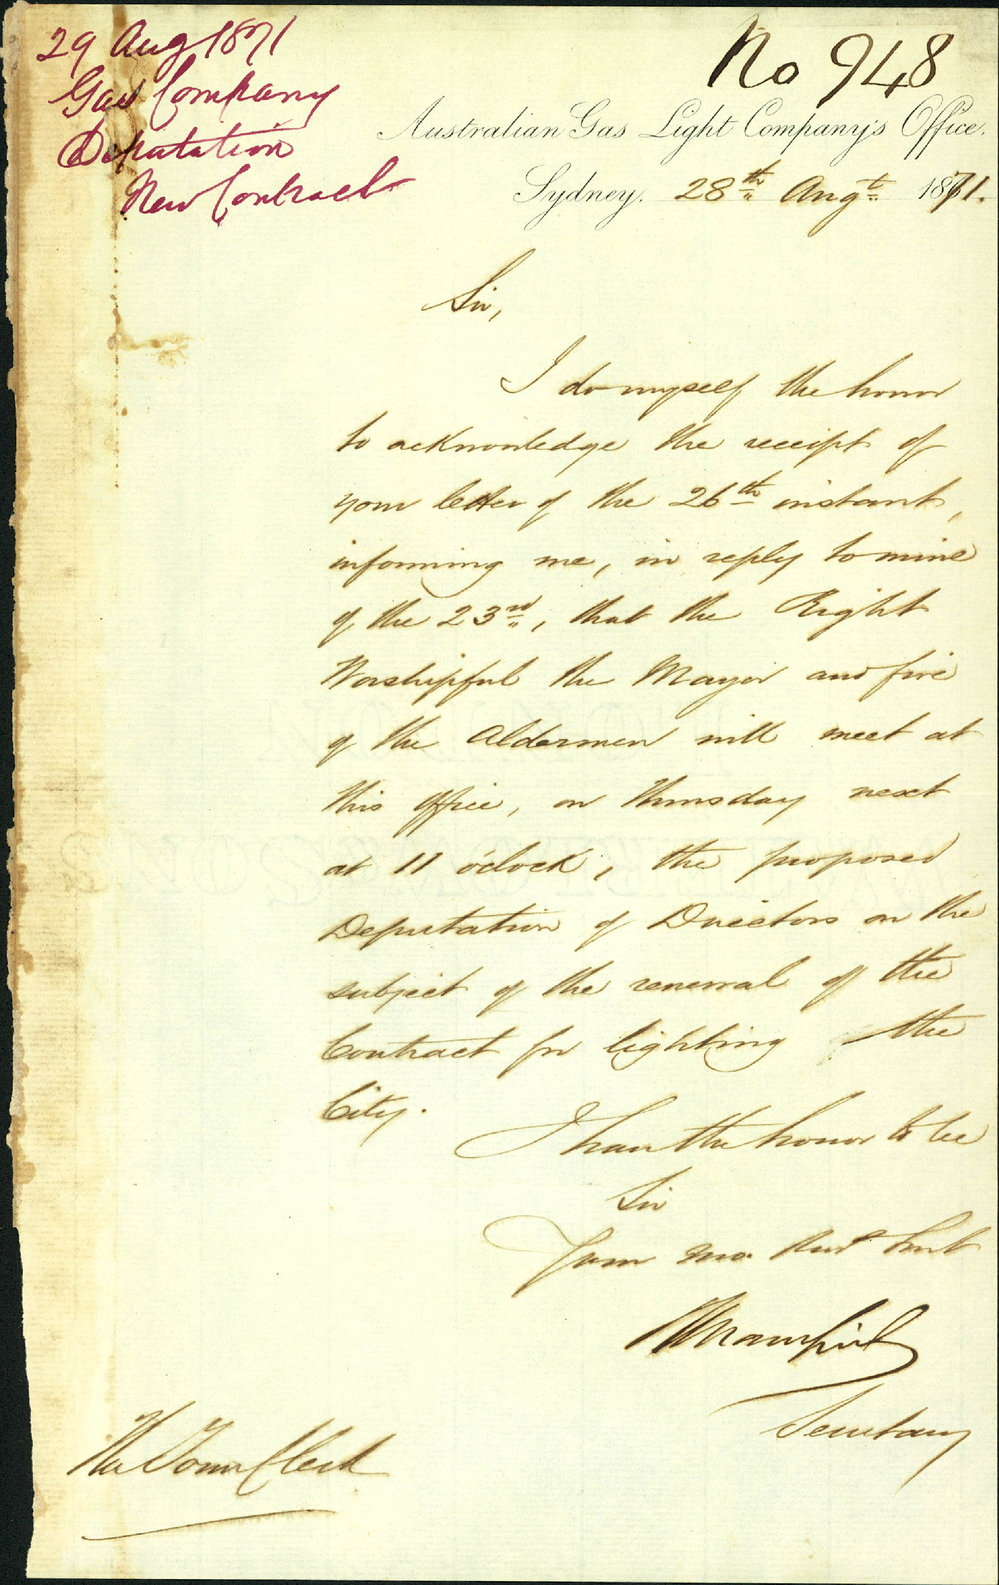 29 Aug 1871
Gas Company
Deputation
New Contract
No 948
Australian Gas Light Company's Office.
Sydney. 28th Augt 1871.
Sir,
I do myself the honor
to acknowledge the receipt of
your letter of the 26th instant,
informing me, in reply to mine
of the 23rd, that the Right
Worshipful the Mayor and five
of the Aldermen will meet at
this Office, on Thursday next
at 11 o'clock, the proposed
Deputation of Directors on the
subject of the renewal of the
Contract for lighting the
City.
I have the honor to be
Sir
Your mo
Secretary
The Town Clerk